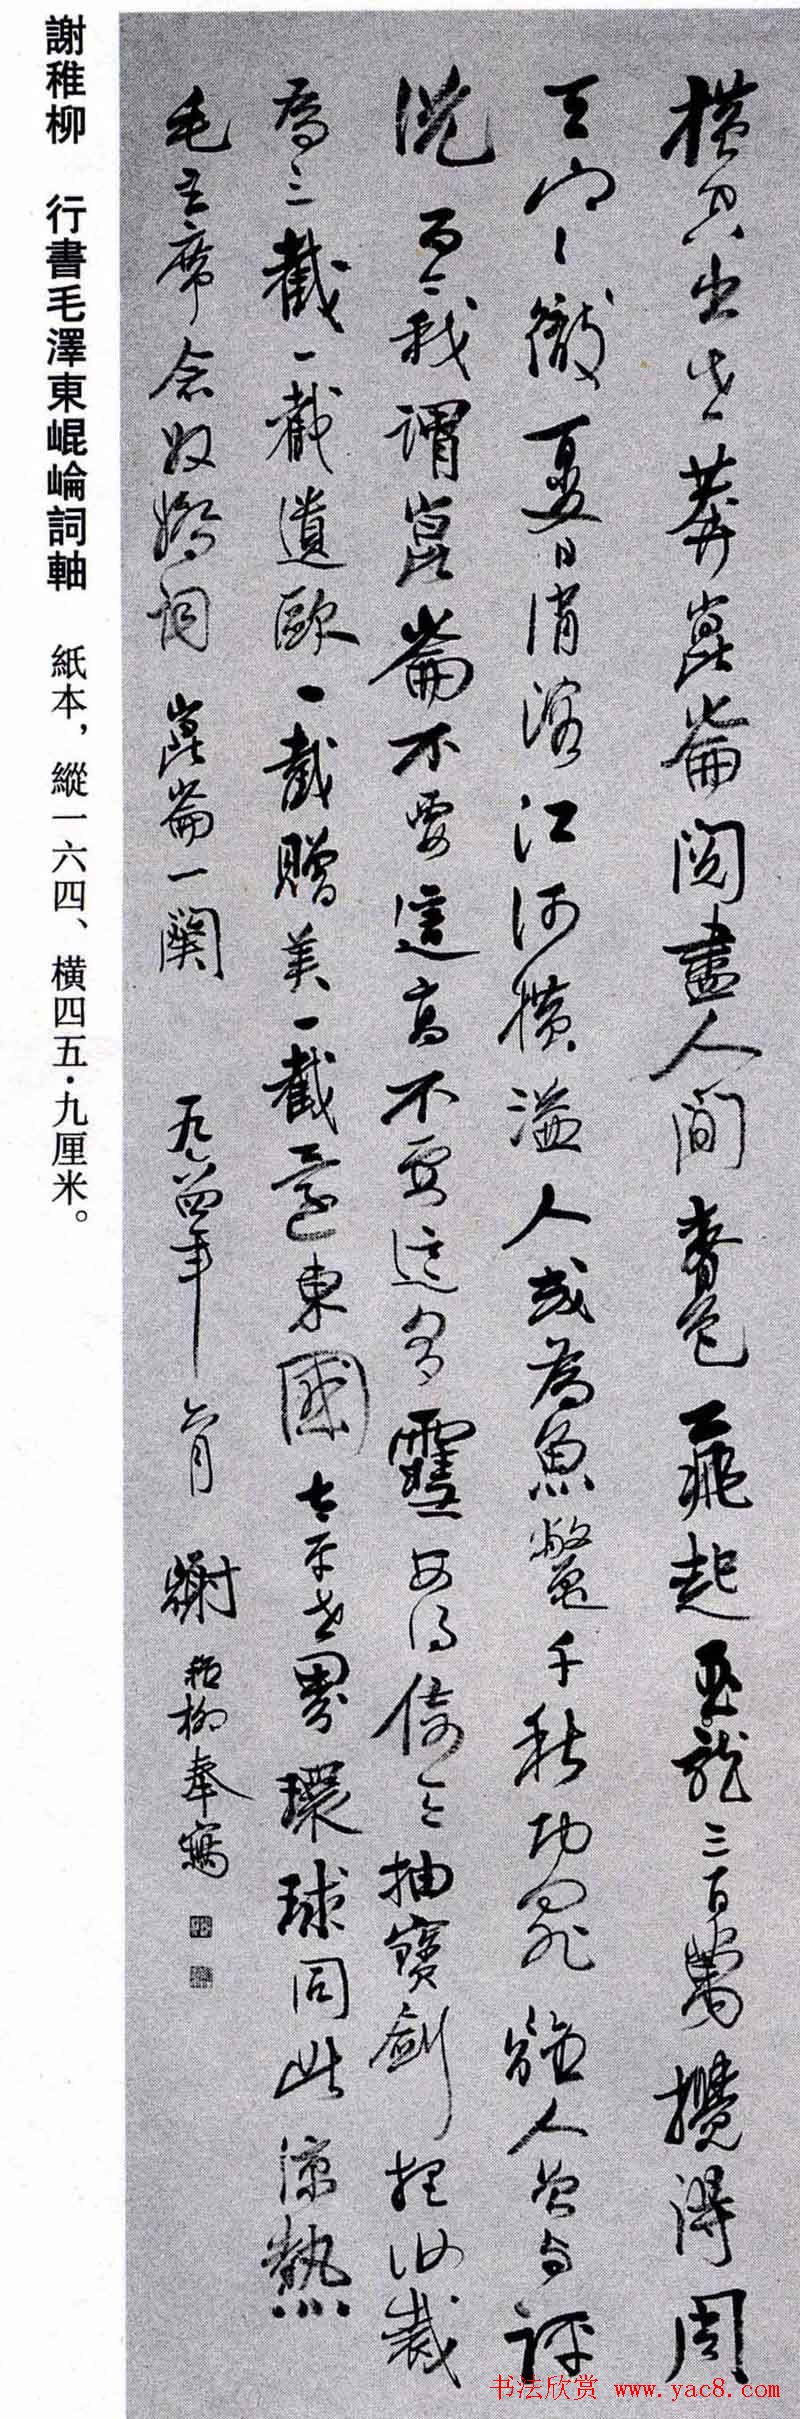 橫空出世莽崑崙閱盡人間春色飛起玉龍三百萬攪得周
天寒徹夏日消溶江河橫溢人或為魚鱉千秋功罪誰人曾與評
說而今我謂崑崙不要這高不要這多雪安得倚天抽寶劍把汝裁
為三截一截遺歐一截贈美一截還東國太平世界環球同此涼熱
毛主席念奴嬌詞 崑崙一闋 一九四年六月 謝稚柳奉寫
謝稚柳 行書毛澤東崐崘詞軸 紙本，縱一六四、橫四五·九厘米。
书法欣赏 www.yac8.com